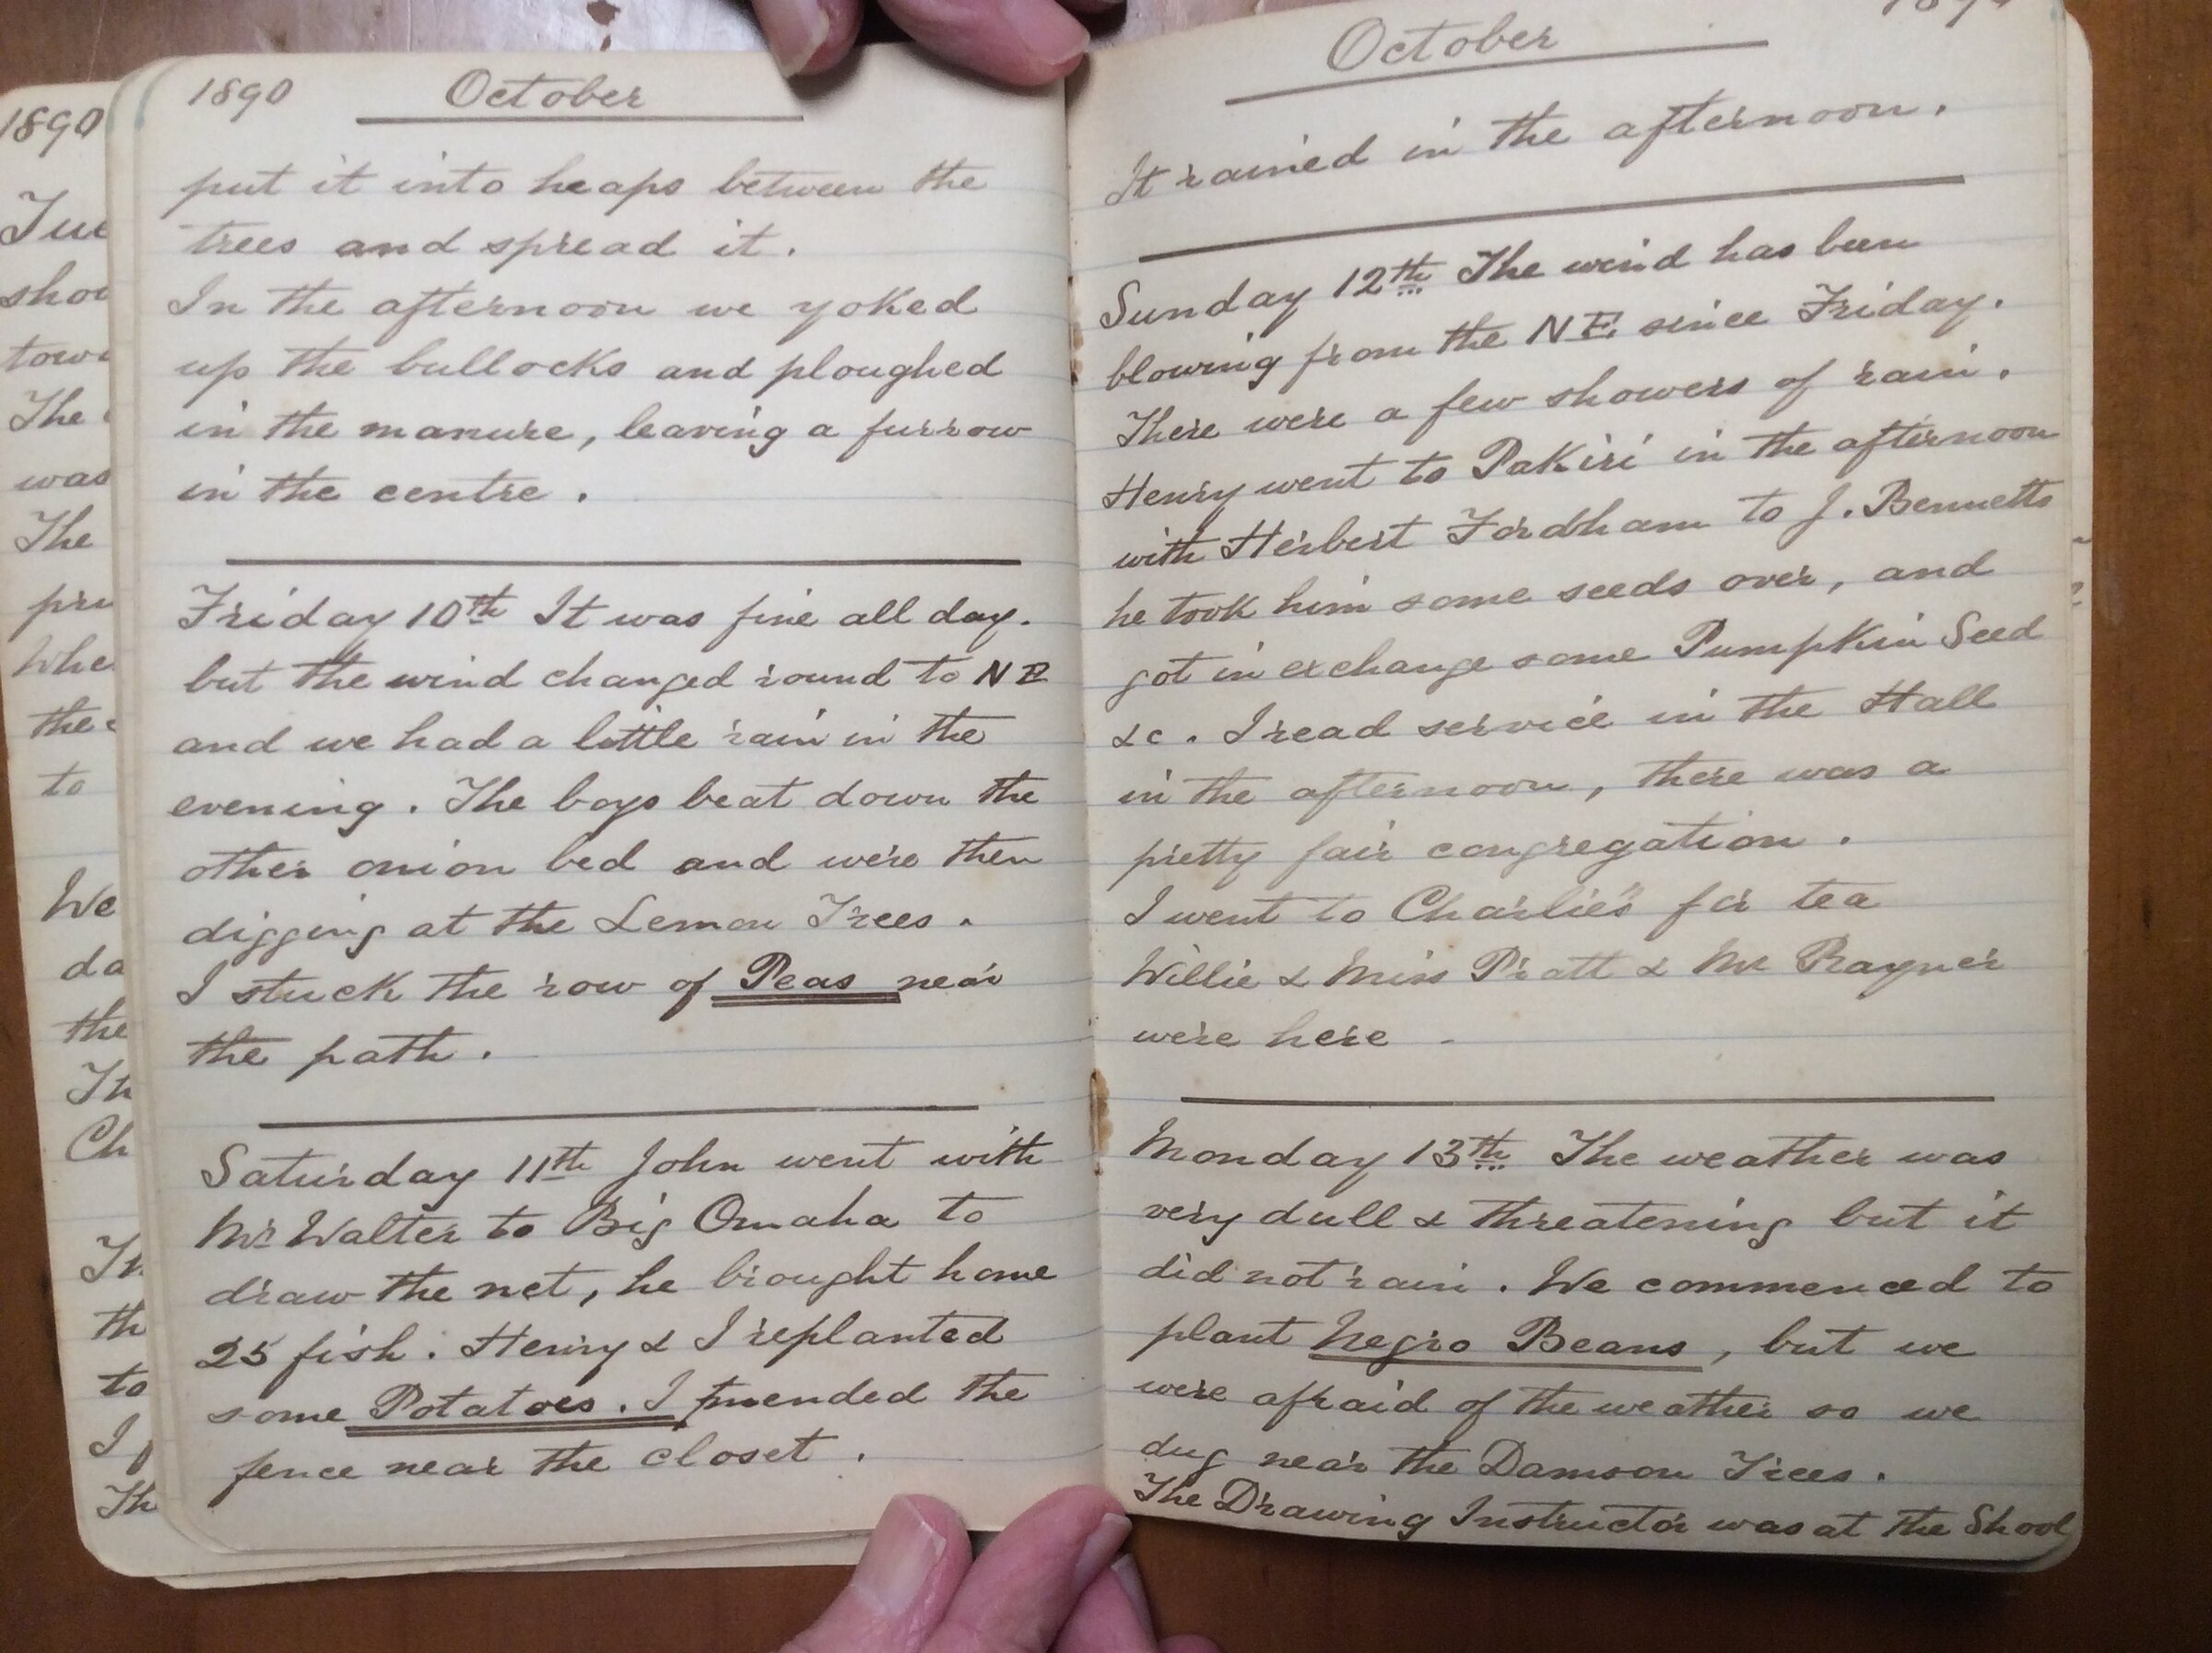 1890 October
put it into heaps between the
trees and spread it.
In the afternoon we yoked
up the bullocks and ploughed
in the manure, leaving a furrow
in the centre.
Friday 10th It was fine all day.
but the wind changed round to NE
and we had a little rain in the
evening. The boys beat down the
other onion bed and were then
digging at the Lemon Trees.
I stuck the row of Peas near
the path.
Saturday 11th John went with
Mr Walter to Big Omaha to
draw the net, he brought home
25 fish. Henry & I replanted
some Potatoes. I mended the
fence near the closet.
October
It rained in the afternoon.
Sunday 12th The wind has been
blowing from the NE. since Friday.
There were a few showers of rain.
Henry went to Pakiri in the afternoon
with Herbert Fordham to J. Bennetts
he took him some seeds over, and
got in exchange some Pumpkin Seed
&c. I read service in the Hall
in the afternoon, there was a
pretty fair congregation.
I went to Charlie's for tea
Willie & Miss Pratt & Mr Rayner
were here -
Monday 13th The weather was
very dull & threatening but it
did not rain. We commenced to
plant Negro Beans, but we
were afraid of the weather so we
dug near the Damson Trees.
The Drawing Instructor was at the Shool
1890
Tue
The
was
The
the
to
We
da
the
Ch
th
to